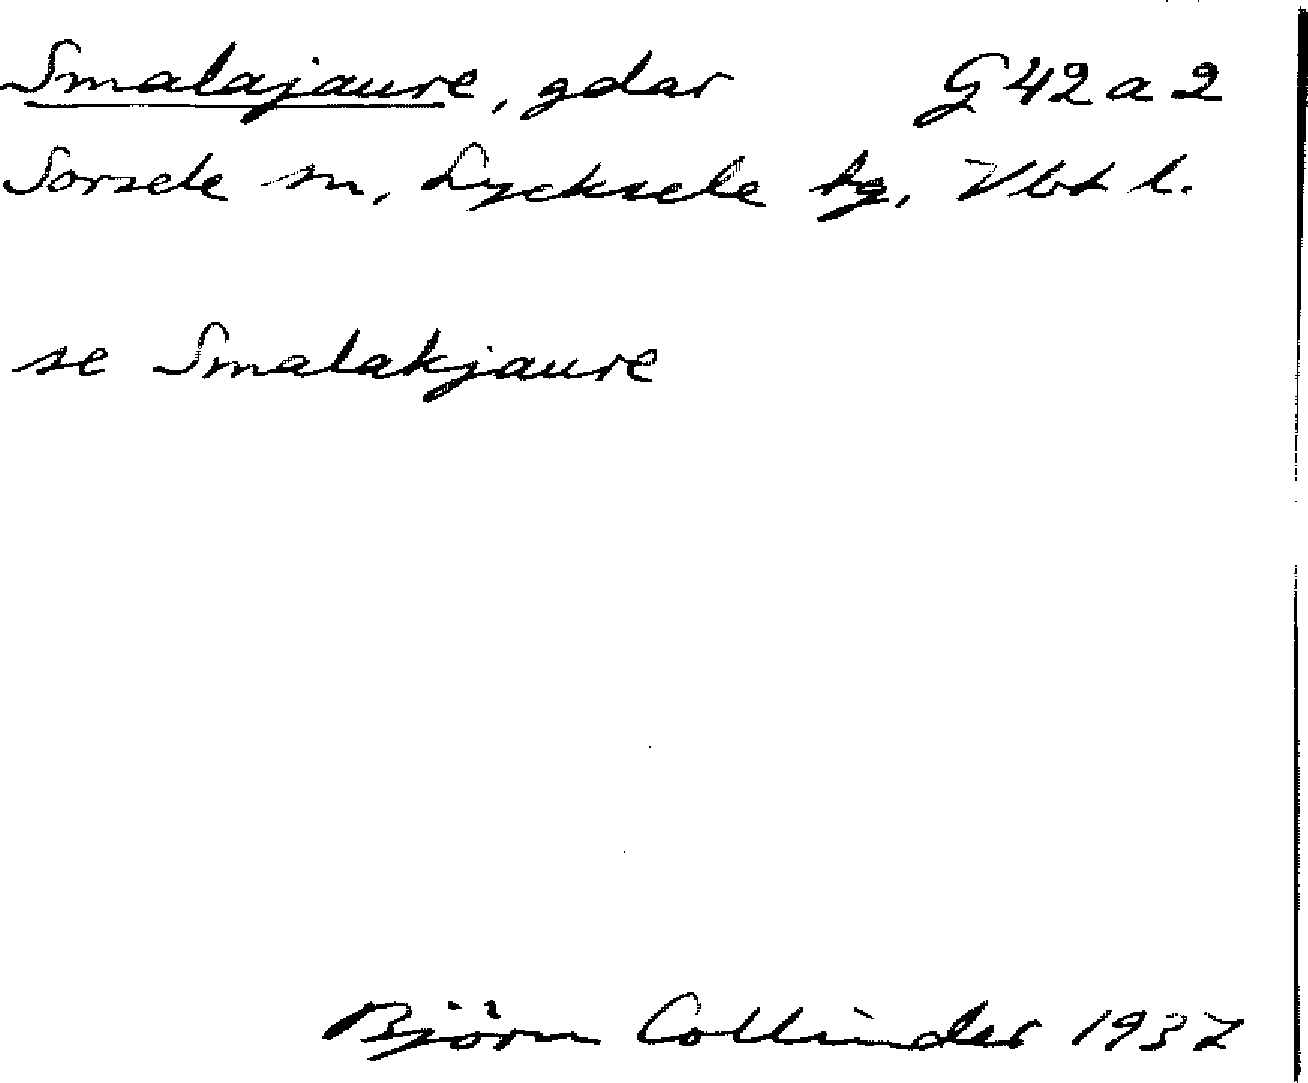 Smalajaure, gdar G 42 a 2
Sorsele sn, Lycksele tg, Vbt l.
se Smalakjaure
Björn Collinder 1937